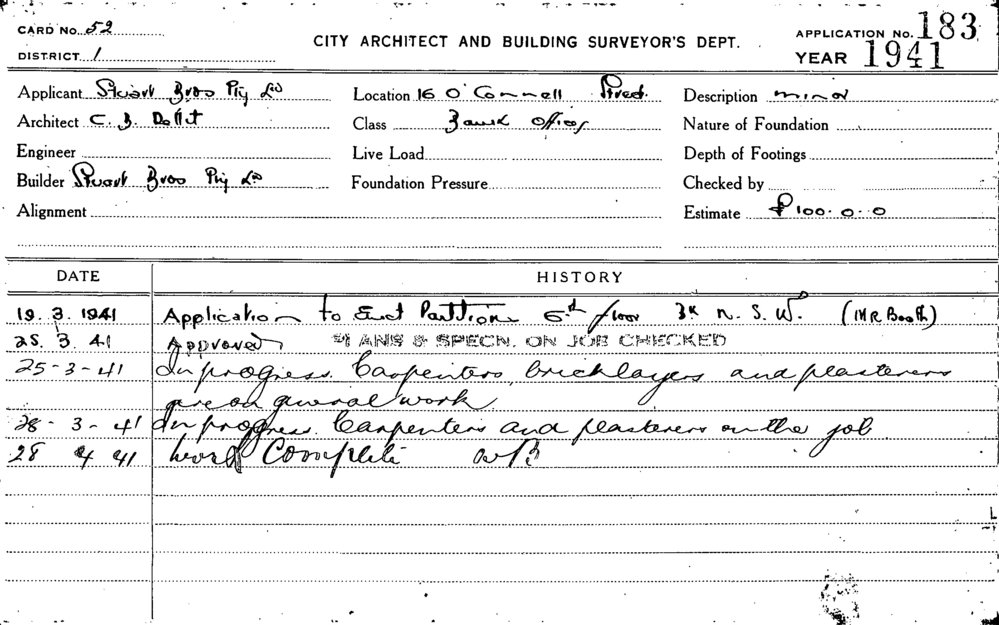 CARD No. 52
CITY ARCHITECT AND BUILDING SURVEYOR'S DEPT.
APPLICATION No. 183
DISTRICT 1
YEAR 1941
Applicant Stuart Bros Pty Ld
Location 16 O'Connell Street
Description minor
Architect C. B.
Class Bank Offices
Nature of Foundation
Engineer
Live Load
Depth of Footings
Builder Stuart Bros Pty Ld
Foundation Pressure
Checked by
Alignment
Estimate £100.0.0
DATE
HISTORY
19.3.1941 Application to Erect Partition 6th floor Bk N.S.W. (MR Booth)
25.3.41 Approved PLANS & SPECN. ON JOB CHECKED
25-3-41 In progress. Carpenters, bricklayers and plasterers
are on general work
28-3-41 In progress. Carpenters and plasterers on the job
28 4 41 Work Complete